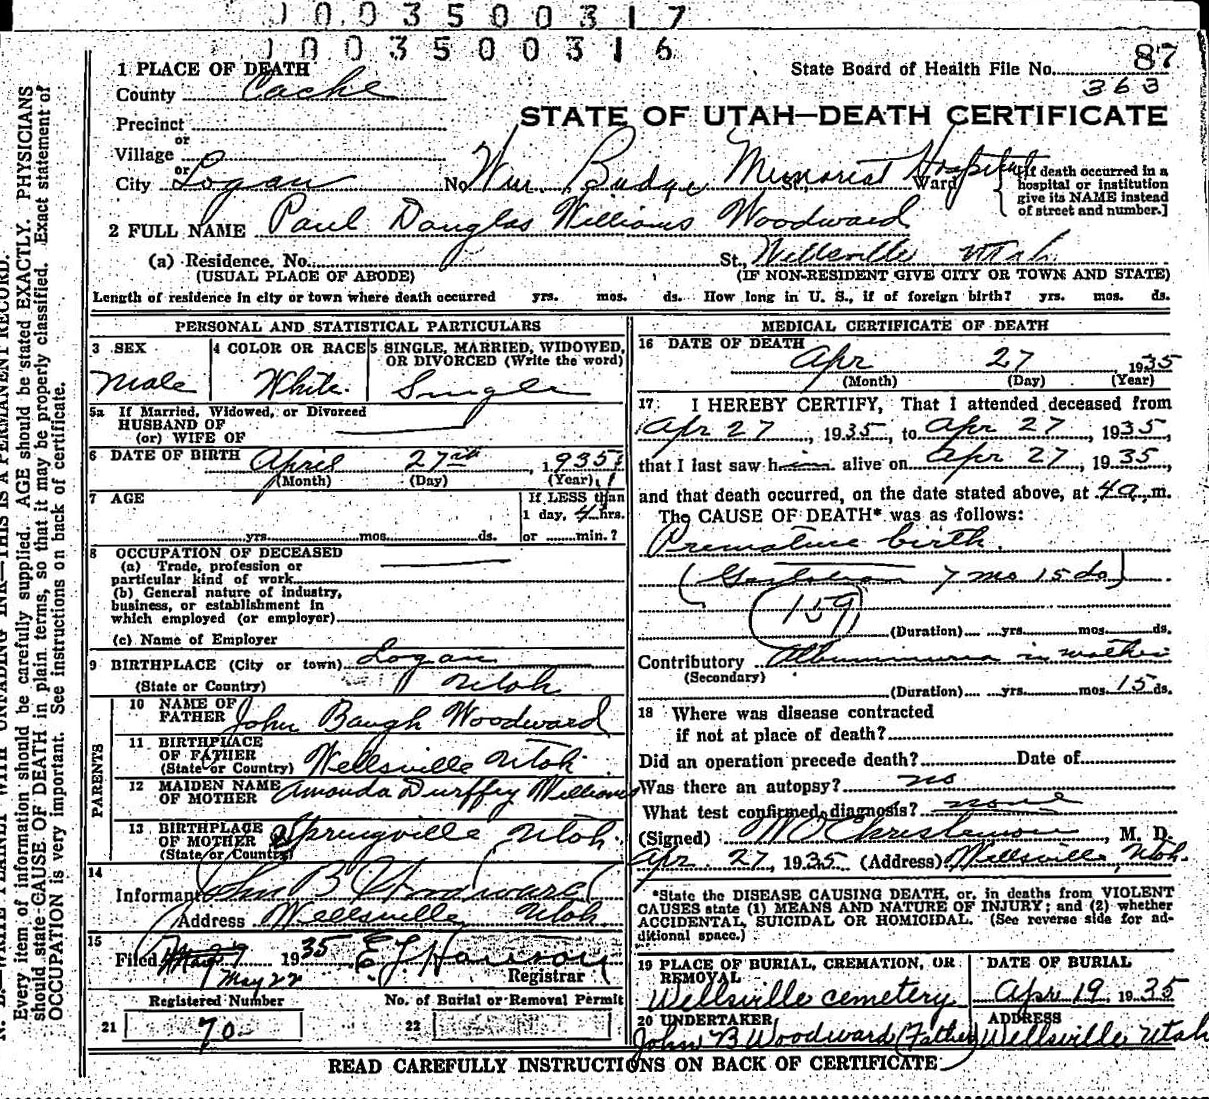 1003500317
1003500316
87
State Board of Health File No.
363
1 PLACE OF DEATH
County Cache
STATE OF UTAH—DEATH CERTIFICATE
Precinct
or
Village
or
City Logan No. Wm. Budge Memorial Hospital St., Ward
[If death occurred in a hospital or institution give its NAME instead of street and number.]
2 FULL NAME Paul Douglas Williams Woodward
(a) Residence. No. St., Wellsville Utah
(USUAL PLACE OF ABODE) (IF NON-RESIDENT GIVE CITY OR TOWN AND STATE)
Length of residence in city or town where death occurred yrs. mos. ds. How long in U. S., if of foreign birth? yrs. mos. ds.
PERSONAL AND STATISTICAL PARTICULARS
3 SEX
Male
4 COLOR OR RACE
White
5 SINGLE, MARRIED, WIDOWED,
OR DIVORCED (Write the word)
Single
5a If Married, Widowed, or Divorced
HUSBAND OF
(or) WIFE OF
6 DATE OF BIRTH April 27th, 1935
(Month) (Day) (Year)
7 AGE
yrs. mos. ds.
If LESS than
1 day, 4 hrs.
or min.?
8 OCCUPATION OF DECEASED
(a) Trade, profession or
particular kind of work
(b) General nature of industry,
business, or establishment in
which employed (or employer)
(c) Name of Employer
9 BIRTHPLACE (City or town) Logan
(State or Country) Utah
PARENTS
10 NAME OF
FATHER John Baugh Woodward
11 BIRTHPLACE
OF FATHER
(State or Country) Wellsville Utah
12 MAIDEN NAME
OF MOTHER Amanda Durffey Williams
13 BIRTHPLACE
OF MOTHER
(State or Country) Springville Utah
14
Informant John B Woodward
Address Wellsville Utah
15
Filed May 22 1935
Registrar
Registered Number No. of Burial or Removal Permit
21 70 22
MEDICAL CERTIFICATE OF DEATH
16 DATE OF DEATH
Apr 27 1935
(Month) (Day) (Year)
17 I HEREBY CERTIFY, That I attended deceased from
Apr 27, 1935, to Apr 27, 1935,
that I last saw him alive on Apr 27, 1935,
and that death occurred, on the date stated above, at 4 a. m.
The CAUSE OF DEATH* was as follows:
Premature birth.
(Gestation 7 mo 15 da)
159
(Duration) yrs. mos. ds.
Contributory Albuminuria in mother
(Secondary)
(Duration) yrs. mos. 15 ds.
18 Where was disease contracted
if not at place of death?
Did an operation precede death? Date of
Was there an autopsy? no
What test confirmed diagnosis? none
(Signed) Christenson, M. D.
Apr. 27, 1935 (Address) Wellsville, Utah.
*State the DISEASE CAUSING DEATH, or, in deaths from VIOLENT
CAUSES state (1) MEANS AND NATURE OF INJURY; and (2) whether
ACCIDENTAL, SUICIDAL OR HOMICIDAL. (See reverse side for ad-
ditional space.)
19 PLACE OF BURIAL, CREMATION, OR
REMOVAL
Wellsville cemetery
DATE OF BURIAL
Apr 19, 1935
20 UNDERTAKER
John B Woodward (Father)
ADDRESS
Wellsville Utah
READ CAREFULLY INSTRUCTIONS ON BACK OF CERTIFICATE
N. B.—WRITE PLAINLY WITH UNFADING INK—THIS IS A PERMANENT RECORD.
Every item of information should be carefully supplied. AGE should be stated EXACTLY. PHYSICIANS
should state CAUSE OF DEATH in plain terms, so that it may be properly classified. Exact statement of
OCCUPATION is very important. See instructions on back of certificate.